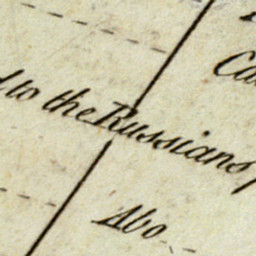 to the Russians
Abo